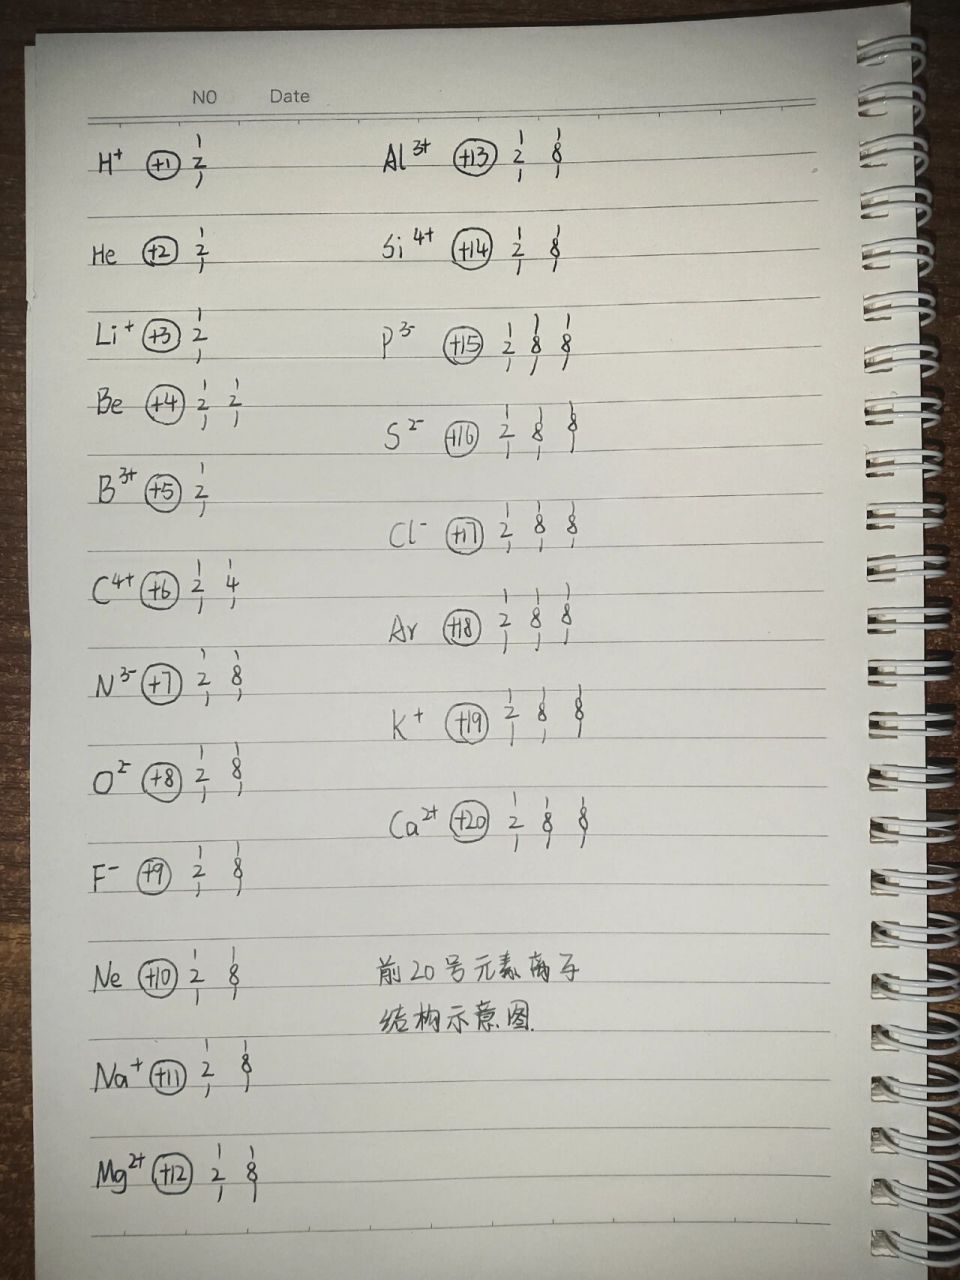 NO Date
H⁺ (+1) 2
He (+2) 2
Li⁺ (+3) 2
Be (+4) 2 2
B³⁺ (+5) 2
C⁴⁺ (+6) 2 4
N³⁻ (+7) 2 8
O²⁻ (+8) 2 8
F⁻ (+9) 2 8
Ne (+10) 2 8
Na⁺ (+11) 2 8
Mg²⁺ (+12) 2 8
Al³⁺ (+13) 2 8
Si⁴⁺ (+14) 2 8
P³⁻ (+15) 2 8 8
S²⁻ (+16) 2 8 8
Cl⁻ (+17) 2 8 8
Ar (+18) 2 8 8
K⁺ (+19) 2 8 8
Ca²⁺ (+20) 2 8 8
前20号元素离子
结构示意图